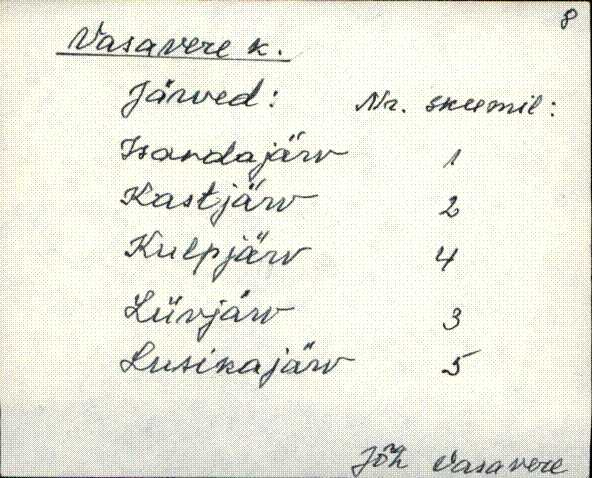 8
Vasavere k.
Järved: Nr. skeemil:
Isandajärv 1
Kastjärv 2
Kulpjärv 4
Liivjärv 3
Lusikajärv 5
Jõh Vasavere